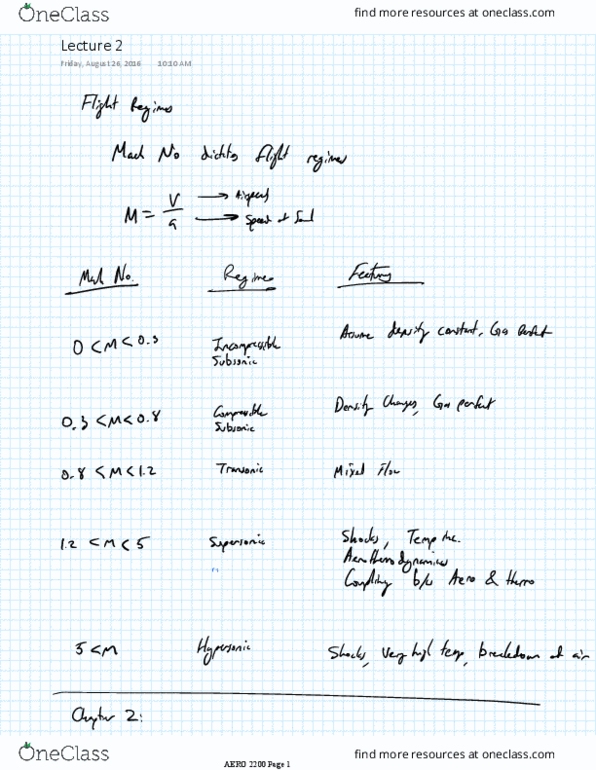 OneClass
find more resources at oneclass.com
Lecture 2
Friday, August 26, 2016 10:10 AM
Flight Regimes
Mach No dictates flight regimes
M = V/a → Airspeed
→ Speed of Sound
Mach No. Regime Features
0 < M < 0.3 Incompressible Subsonic Assume density constant, Gas Perfect
0.3 < M < 0.8 Compressible Subsonic Density Changes, Gas perfect
0.8 < M < 1.2 Transonic Mixed Flow
1.2 < M < 5 Supersonic Shocks, Temp inc.
Aerothermodynamics
Coupling b/w Aero & thermo
5 < M Hypersonic Shocks, Very high temp, breakdown of air
Chapter 2:
OneClass
find more resources at oneclass.com
AERO 2200 Page 1